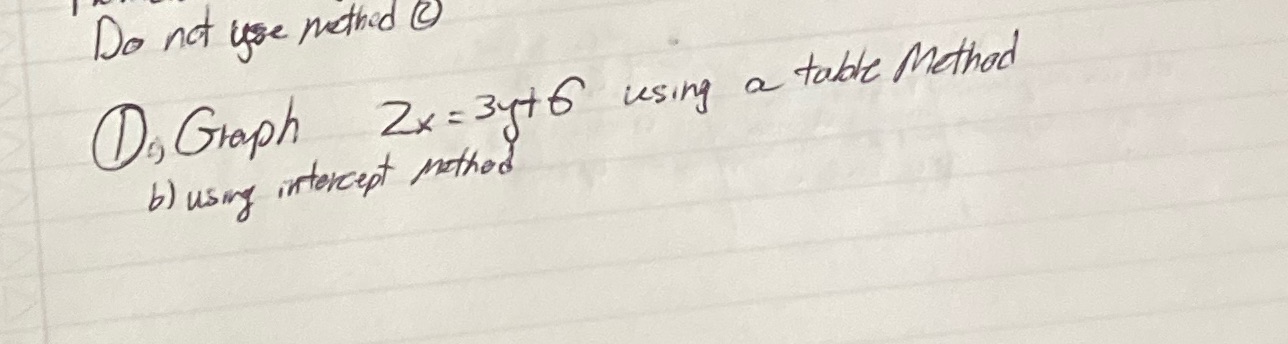 Do not use method ©
① a) Graph 2x = 3y + 6 using a table Method
b) using intercept Method